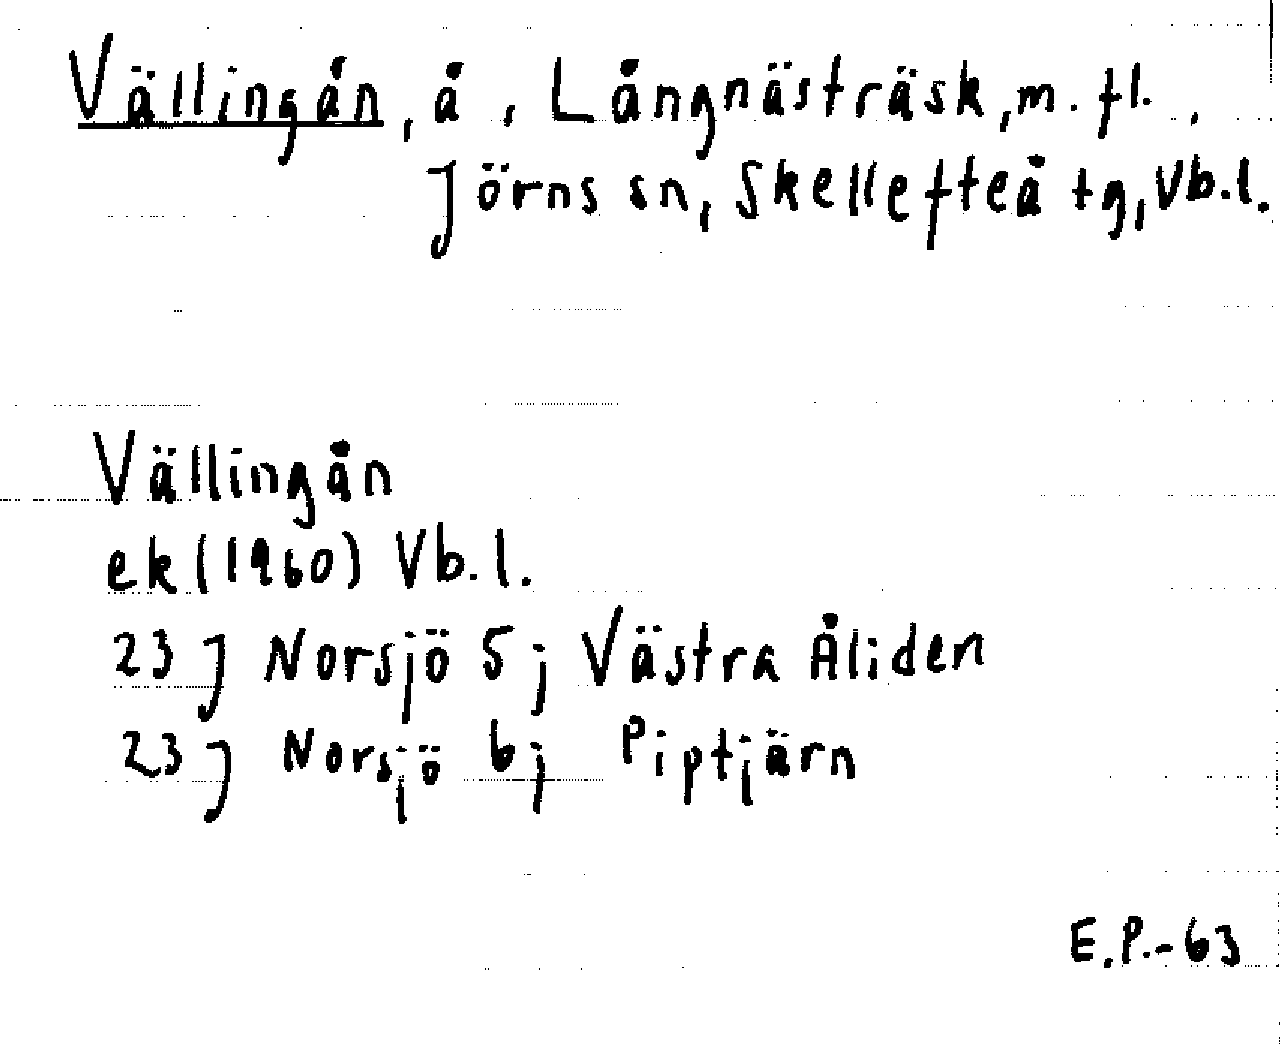 Vällingån, å, Långnästräsk, m. fl.,
Jörns sn, Skellefteå tg, Vb.l.
Vällingån
ek (1960) Vb.l.
23 J Norsjö 5 j Västra Åliden
23 J Norsjö 6 j Piptjärn
E.P.-63